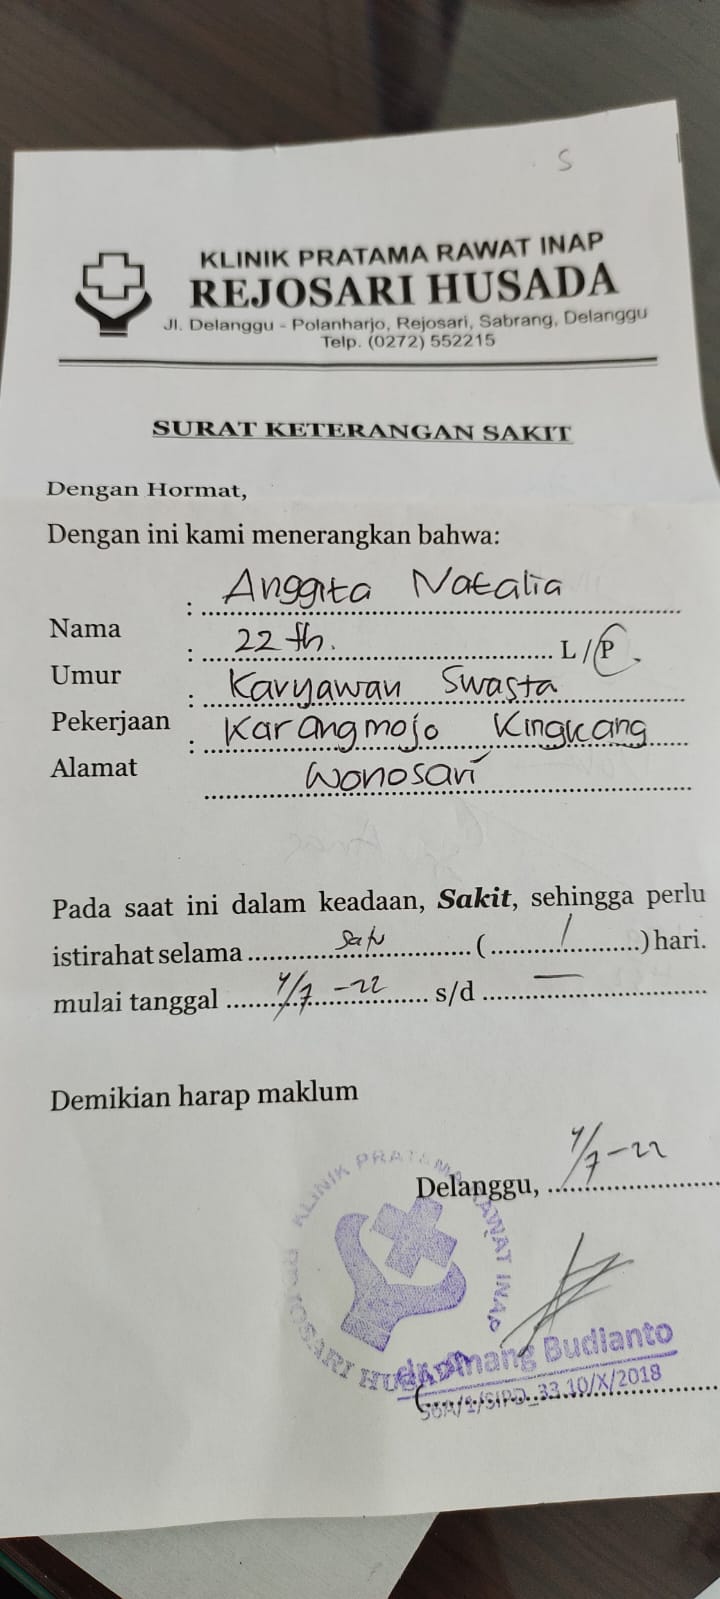 S
KLINIK PRATAMA RAWAT INAP
REJOSARI HUSADA
Jl. Delanggu - Polanharjo, Rejosari, Sabrang, Delanggu
Telp. (0272) 552215
SURAT KETERANGAN SAKIT
Dengan Hormat,
Dengan ini kami menerangkan bahwa:
Nama : Anggita Natalia
Umur : 22 th. L / P
Pekerjaan : Karyawan Swasta
Alamat : Karangmojo Kingkang
Wonosari
Pada saat ini dalam keadaan, Sakit, sehingga perlu
istirahat selama satu ( 1 ) hari.
mulai tanggal 4/7 -22 s/d —
Demikian harap maklum
Delanggu, 4/7 -22
KLINIK PRATAMA RAWAT INAP
REJOSARI HUSADA
Budianto
33.10/X/2018